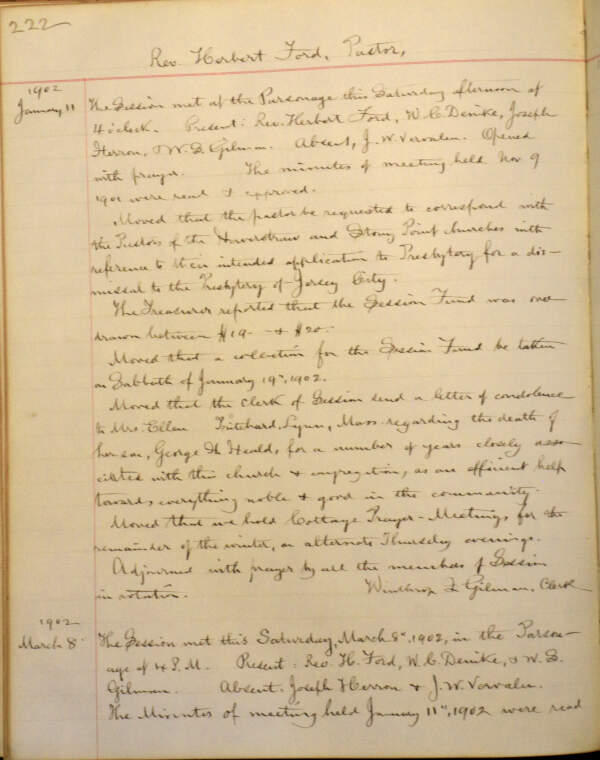 222
Rev. Herbert Ford, Pastor,
1902
January 11
The Session met at the Parsonage this Saturday afternoon at
4 o'clock. Present: Rev. Herbert Ford, W. C. Demke, Joseph
Herron, & W. S. Gilman. Absent, J. W. Vervalen. Opened
with prayer. The minutes of meeting held Nov 9
1901 were read & approved.
Moved that the pastor be requested to correspond with
the Pastors of the Haverstraw and Stony Point churches with
reference to their intended application to Presbytery for a dis-
missal to the Presbytery of Jersey City.
The Treasurer reported that the Session Fund was over
drawn between $19 - & $20 -
Moved that a collection for the Session Fund be taken
on Sabbath of January 19", 1902.
Moved that the Clerk of Session send a letter of condolence
to Mrs. Ellen Pritchard, Lynn, Mass. regarding the death of
her son, George H. Heald, for a number of years closely asso-
ciated with this church & congregation, as an efficient help
towards everything noble & good in the community.
Moved that we hold Cottage Prayer-Meetings for the
remainder of the winter, on alternate Thursday evenings.
Adjourned with prayer by all the members of Session
in rotation. Winthrop S. Gilman, Clerk
1902
March 8
The Session met this Saturday, March 8", 1902, in the Parson-
age at 4 P.M. Present: Rev. H. Ford, W. C. Demke, & W. S.
Gilman. Absent: Joseph Herron & J. W. Vervalen.
The Minutes of meeting held January 11", 1902 were read